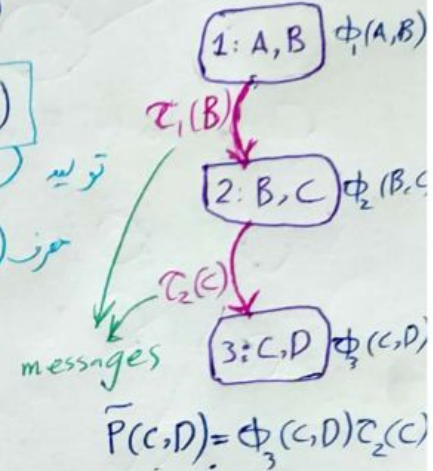 1: A, B ϕ₁(A,B)
τ₁(B)
تولید
2: B, C ϕ₂(B,C
حرف
τ₂(C)
messages
3: C,D ϕ₃(C,D)
P̃(C,D) = ϕ₃(C,D) τ₂(C)